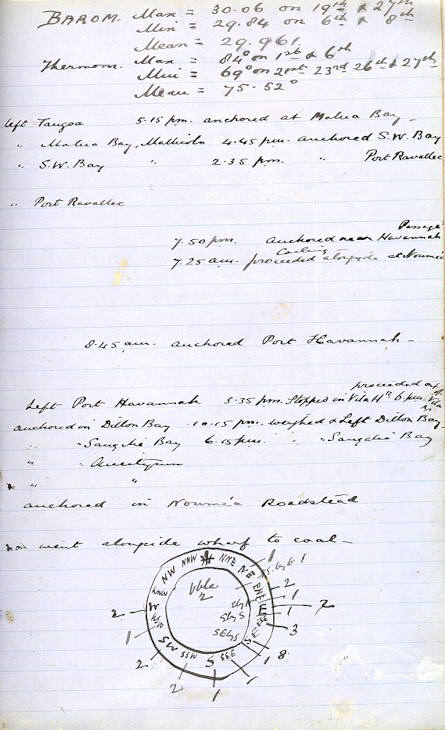 BAROM. Max = 30.06 on 19th & 27th
Min = 29.84 on 6th & 8th
Mean = 29.961
Thermom. Max = 84° on 1st & 6th
Min = 69° on 21st 23rd 26th & 27th
Mean = 75.52°
Left Tangoa 5.15 pm. anchored at Malua Bay -
" Malua Bay, Mallicolo 4.45 pm. anchored S.W. Bay
" S.W. Bay " 2.35 pm. " Port Ravallec
" Port Ravallec
Passage
7.50 pm. anchored near Havannah
Coaling
7.25 am. proceeded alongside at Nouméa
8.45 am. anchored Port Havannah -
proceeded
Left Port Havannah 5.35 pm. Stopped in Vila Hr. 6 pm.
anchored in Dillon Bay - 10.15 pm. weighed & Left Dillon Bay
" Bay 6.15 pm. " Bay
" Aneityum
" "
anchored in Nouméa Roadstead
went alongside wharf to coal -
NNW N NNE
NW NE
Vble
2
ENE
2 W
1
SW
2 SSW S SSE
2 1 1 8
1
1
2
1
7
3